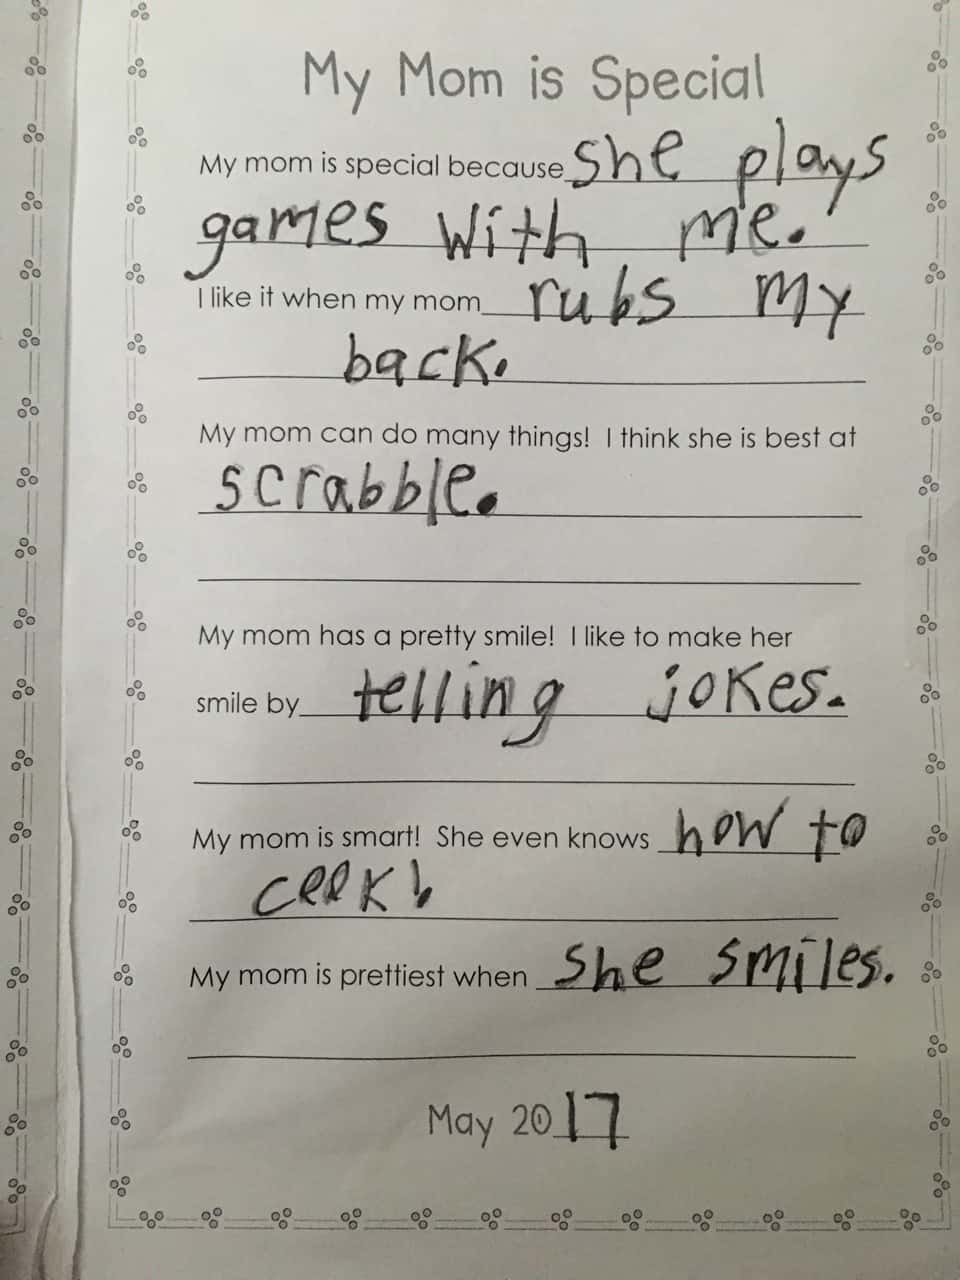 My Mom is Special
My mom is special because she plays
games with me.
I like it when my mom rubs my
back.
My mom can do many things! I think she is best at
scrabble.
My mom has a pretty smile! I like to make her
smile by telling jokes.
My mom is smart! She even knows how to
My mom is prettiest when she smiles.
May 2017